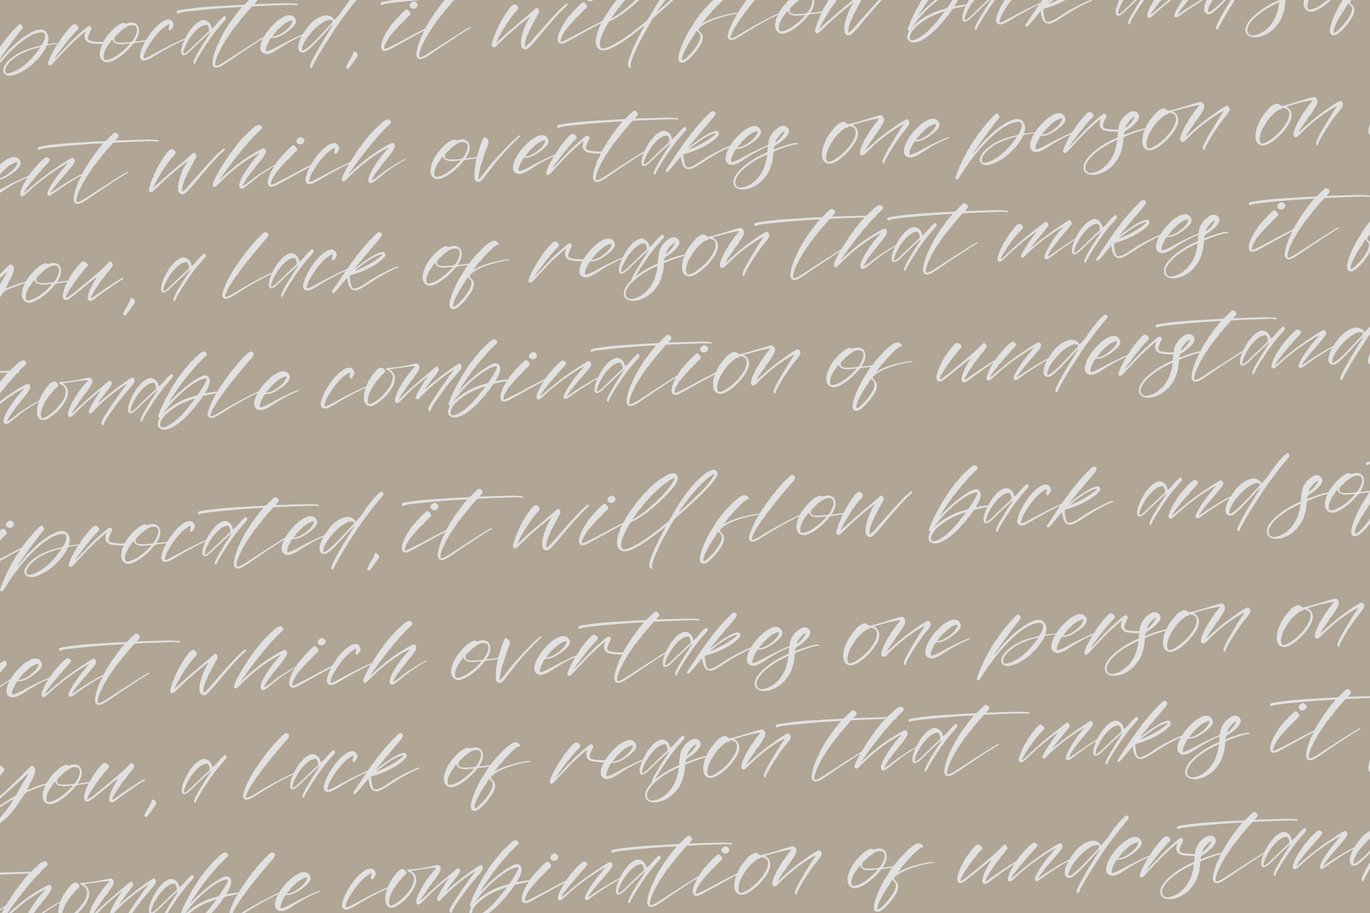 procated, it will flow back and sof
ent which overtakes one person on
you, a lack of reason that makes it p
homable combination of understand
iprocated, it will flow back and so
ent which overtakes one person on
you, a lack of reason that makes it
homable combination of understand